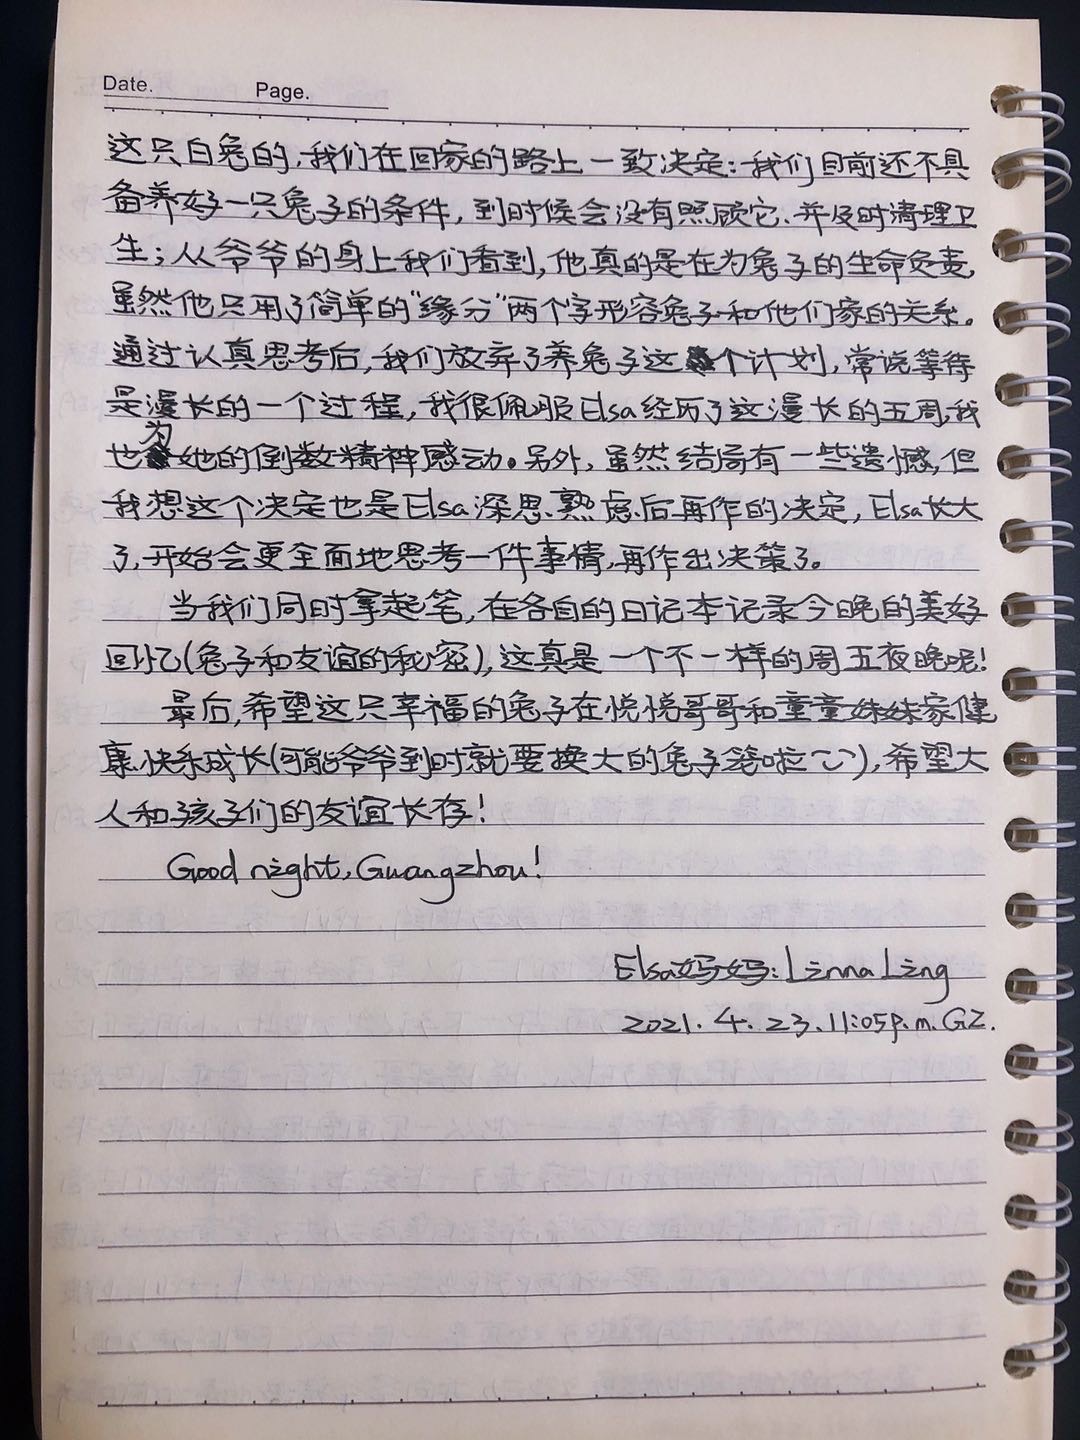 Date.
Page.
这只白兔的，我们在回家的路上一致决定：我们目前还不具
备养好一只兔子的条件，到时候会没有照顾它、并及时清理卫
生；从爷爷的身上我们看到，他真的是在为兔子的生命负责，
虽然他只用了简单的“缘分”两个字形容兔子和他们家的关系。
通过认真思考后，我们放弃了养兔子这个计划，常说等待
是漫长的一个过程，我很佩服Elsa经历了这漫长的五周，我
也为她的倒数精神感动。另外，虽然结局有一些遗憾，但
我想这个决定也是Elsa深思熟虑后再作的决定，Elsa长大
了，开始会更全面地思考一件事情，再作出决策了。
当我们同时拿起笔，在各自的日记本记录今晚的美好
回忆（兔子和友谊的秘密），这真是一个不一样的周五夜晚呢！
最后，希望这只幸福的兔子在悦悦哥哥和童童妹妹家健
康快乐成长（可能爷爷到时就要换大的兔子笼啦~~），希望大
人和孩子们的友谊长存！
Good night, Guangzhou!
Elsa妈妈：Linna Ling
2021.4.23.11:05p.m.GZ.